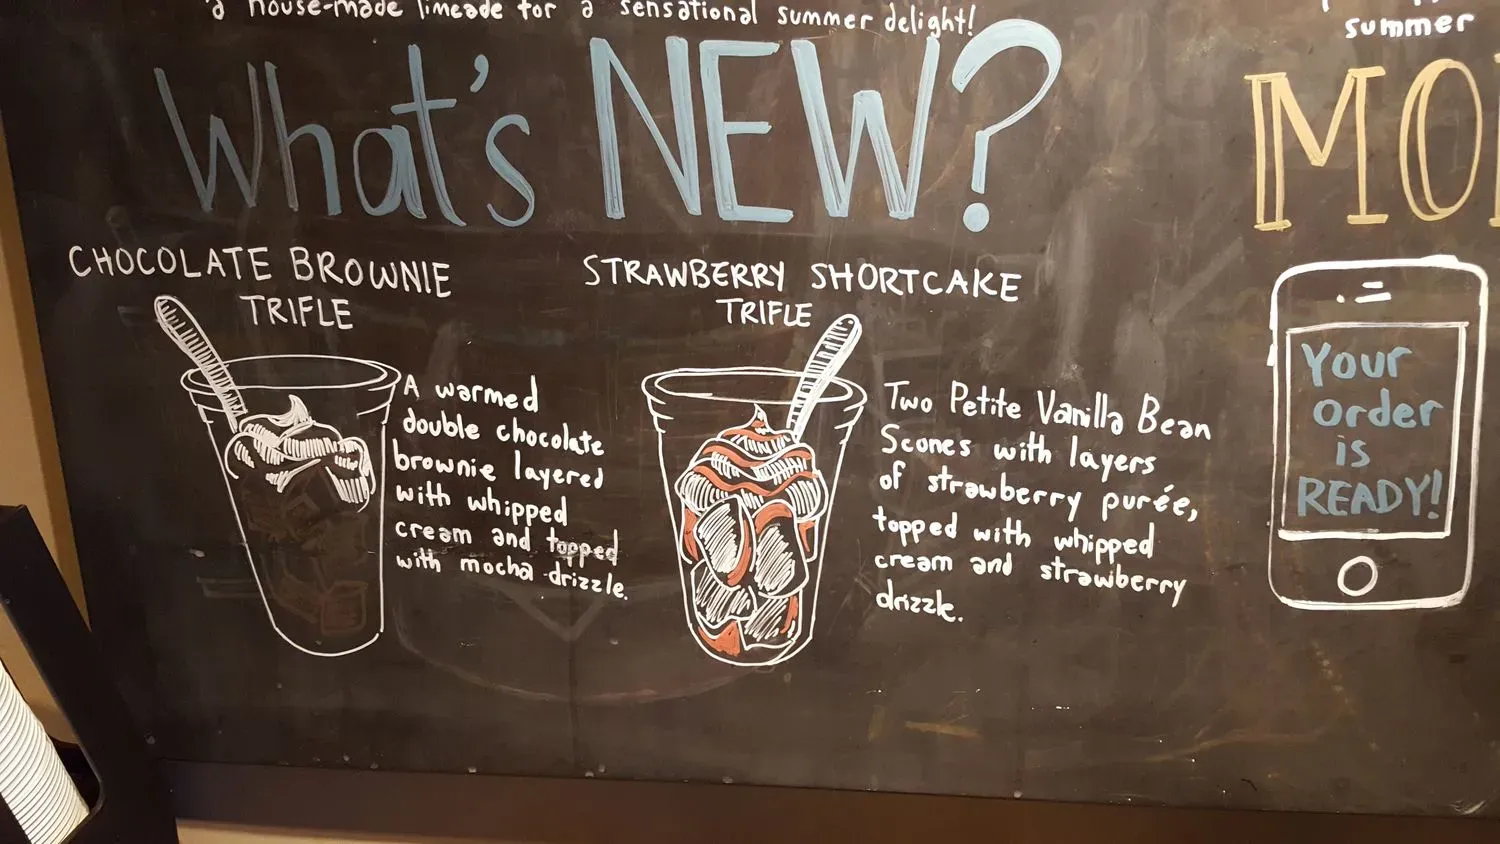 a house-made limeade for a sensational summer delight!
What's NEW?
CHOCOLATE BROWNIE
TRIFLE
A warmed
double chocolate
brownie layered
with whipped
cream and topped
with mocha drizzle.
STRAWBERRY SHORTCAKE
TRIFLE
Two Petite Vanilla Bean
Scones with layers
of strawberry purée,
topped with whipped
cream and strawberry
drizzle.
summer
MO
Your
order
is
READY!